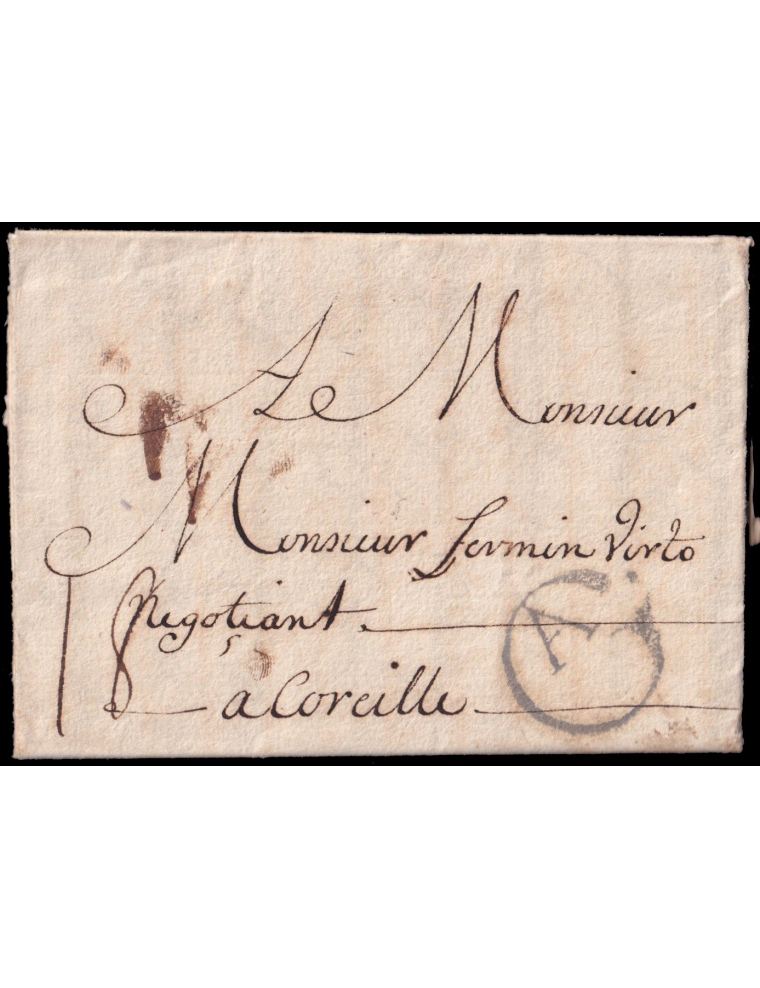 A Monsieur
Monsieur Fermin Virto
Negotiant
à Coreille
18
A